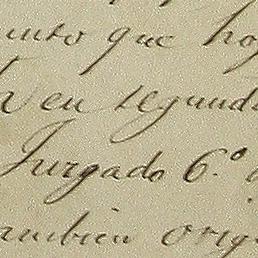 unto que hoy
en segund
Jurgado 6.º
tambien orig